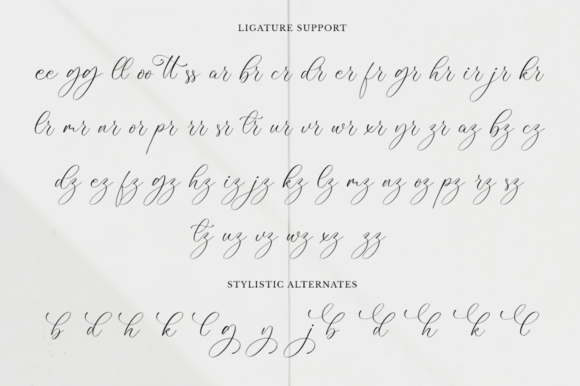 LIGATURE SUPPORT
ee gg ll oo tt ss ar br cr dr er fr gr hr ir jr kr
lr mr nr or pr rr sr tr ur vr wr xr yr zr az bz cz
dz ez fz gz hz iz jz kz lz mz nz oz pz rz sz
tz uz vz wz xz zz
STYLISTIC ALTERNATES
b d h k l g y j b d h k l